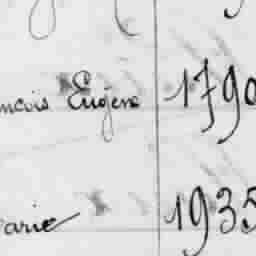 ncois Eugène 1790
arie 1935